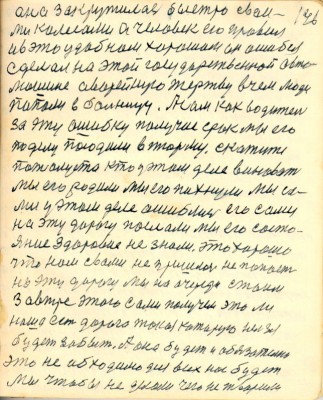 она закрутилась быстро свои- 136
ми колесами а человек его правил
и в это удобном хорошом он ошибся
сделал на этой государственной авто
машине аварейную жертву в чем люди
попали в больницу. А сам как водител
за эту ошибку получае срок мы его
под и посодили в тюрму. скажите
пожалуста кто у этом деле виноват
мы его родили мы его пихнули мы са-
ми у этом деле ошиблись его сами
на эту дорогу послали мы его состо-
яние здоровие не знали. Это хорошо
что нам с вами не пришлось не попаст
на эту дорогу мы на очереди стоим
Завтре этого сами получим это ли
наша ест дорога такая которую нельзя
будит забыт. А она будет и обязательно
это не обходимо для всех нас будет
Мы чтобы не делали чего не творили